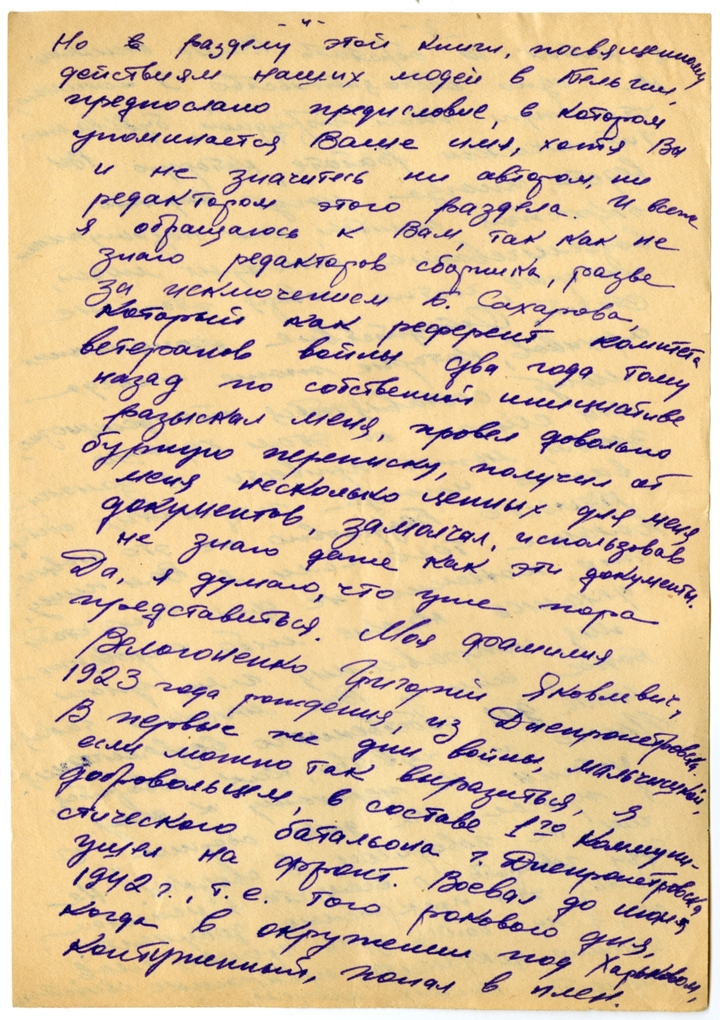 -4-
Но в разделу этой книги, посвященному
действиям наших людей в Бельгии,
предпослано предисловие, в котором
упоминается Ваше имя, хотя Вы
и не значитесь ни автором, ни
редактором этого раздела. И все же
я обращаюсь к Вам, так как не
знаю редакторов сборника, разве
за исключением В. Сахарова,
который как референт комитета
ветеранов войны два года тому
назад по собственной инициативе
разыскал меня, провел довольно
бурную переписку, получил от
меня несколько ценных для меня
документов, замолчал, использовав
не знаю даже как эти документы.
Да, я думаю, что уже пора
представиться. Моя фамилия
Велогоненко Григорий Яковлевич,
1923 года рождения, из Днепропетровска.
В первые же дни войны, мальчишкой,
если можно так выразиться, я
добровольцем, в составе 1го Коммуни-
стического батальона г. Днепропетровска
ушел на фронт. Воевал до июня
1942 г., т.е. того рокового дня,
когда в окружении под Харьковом,
контуженный, попал в плен.